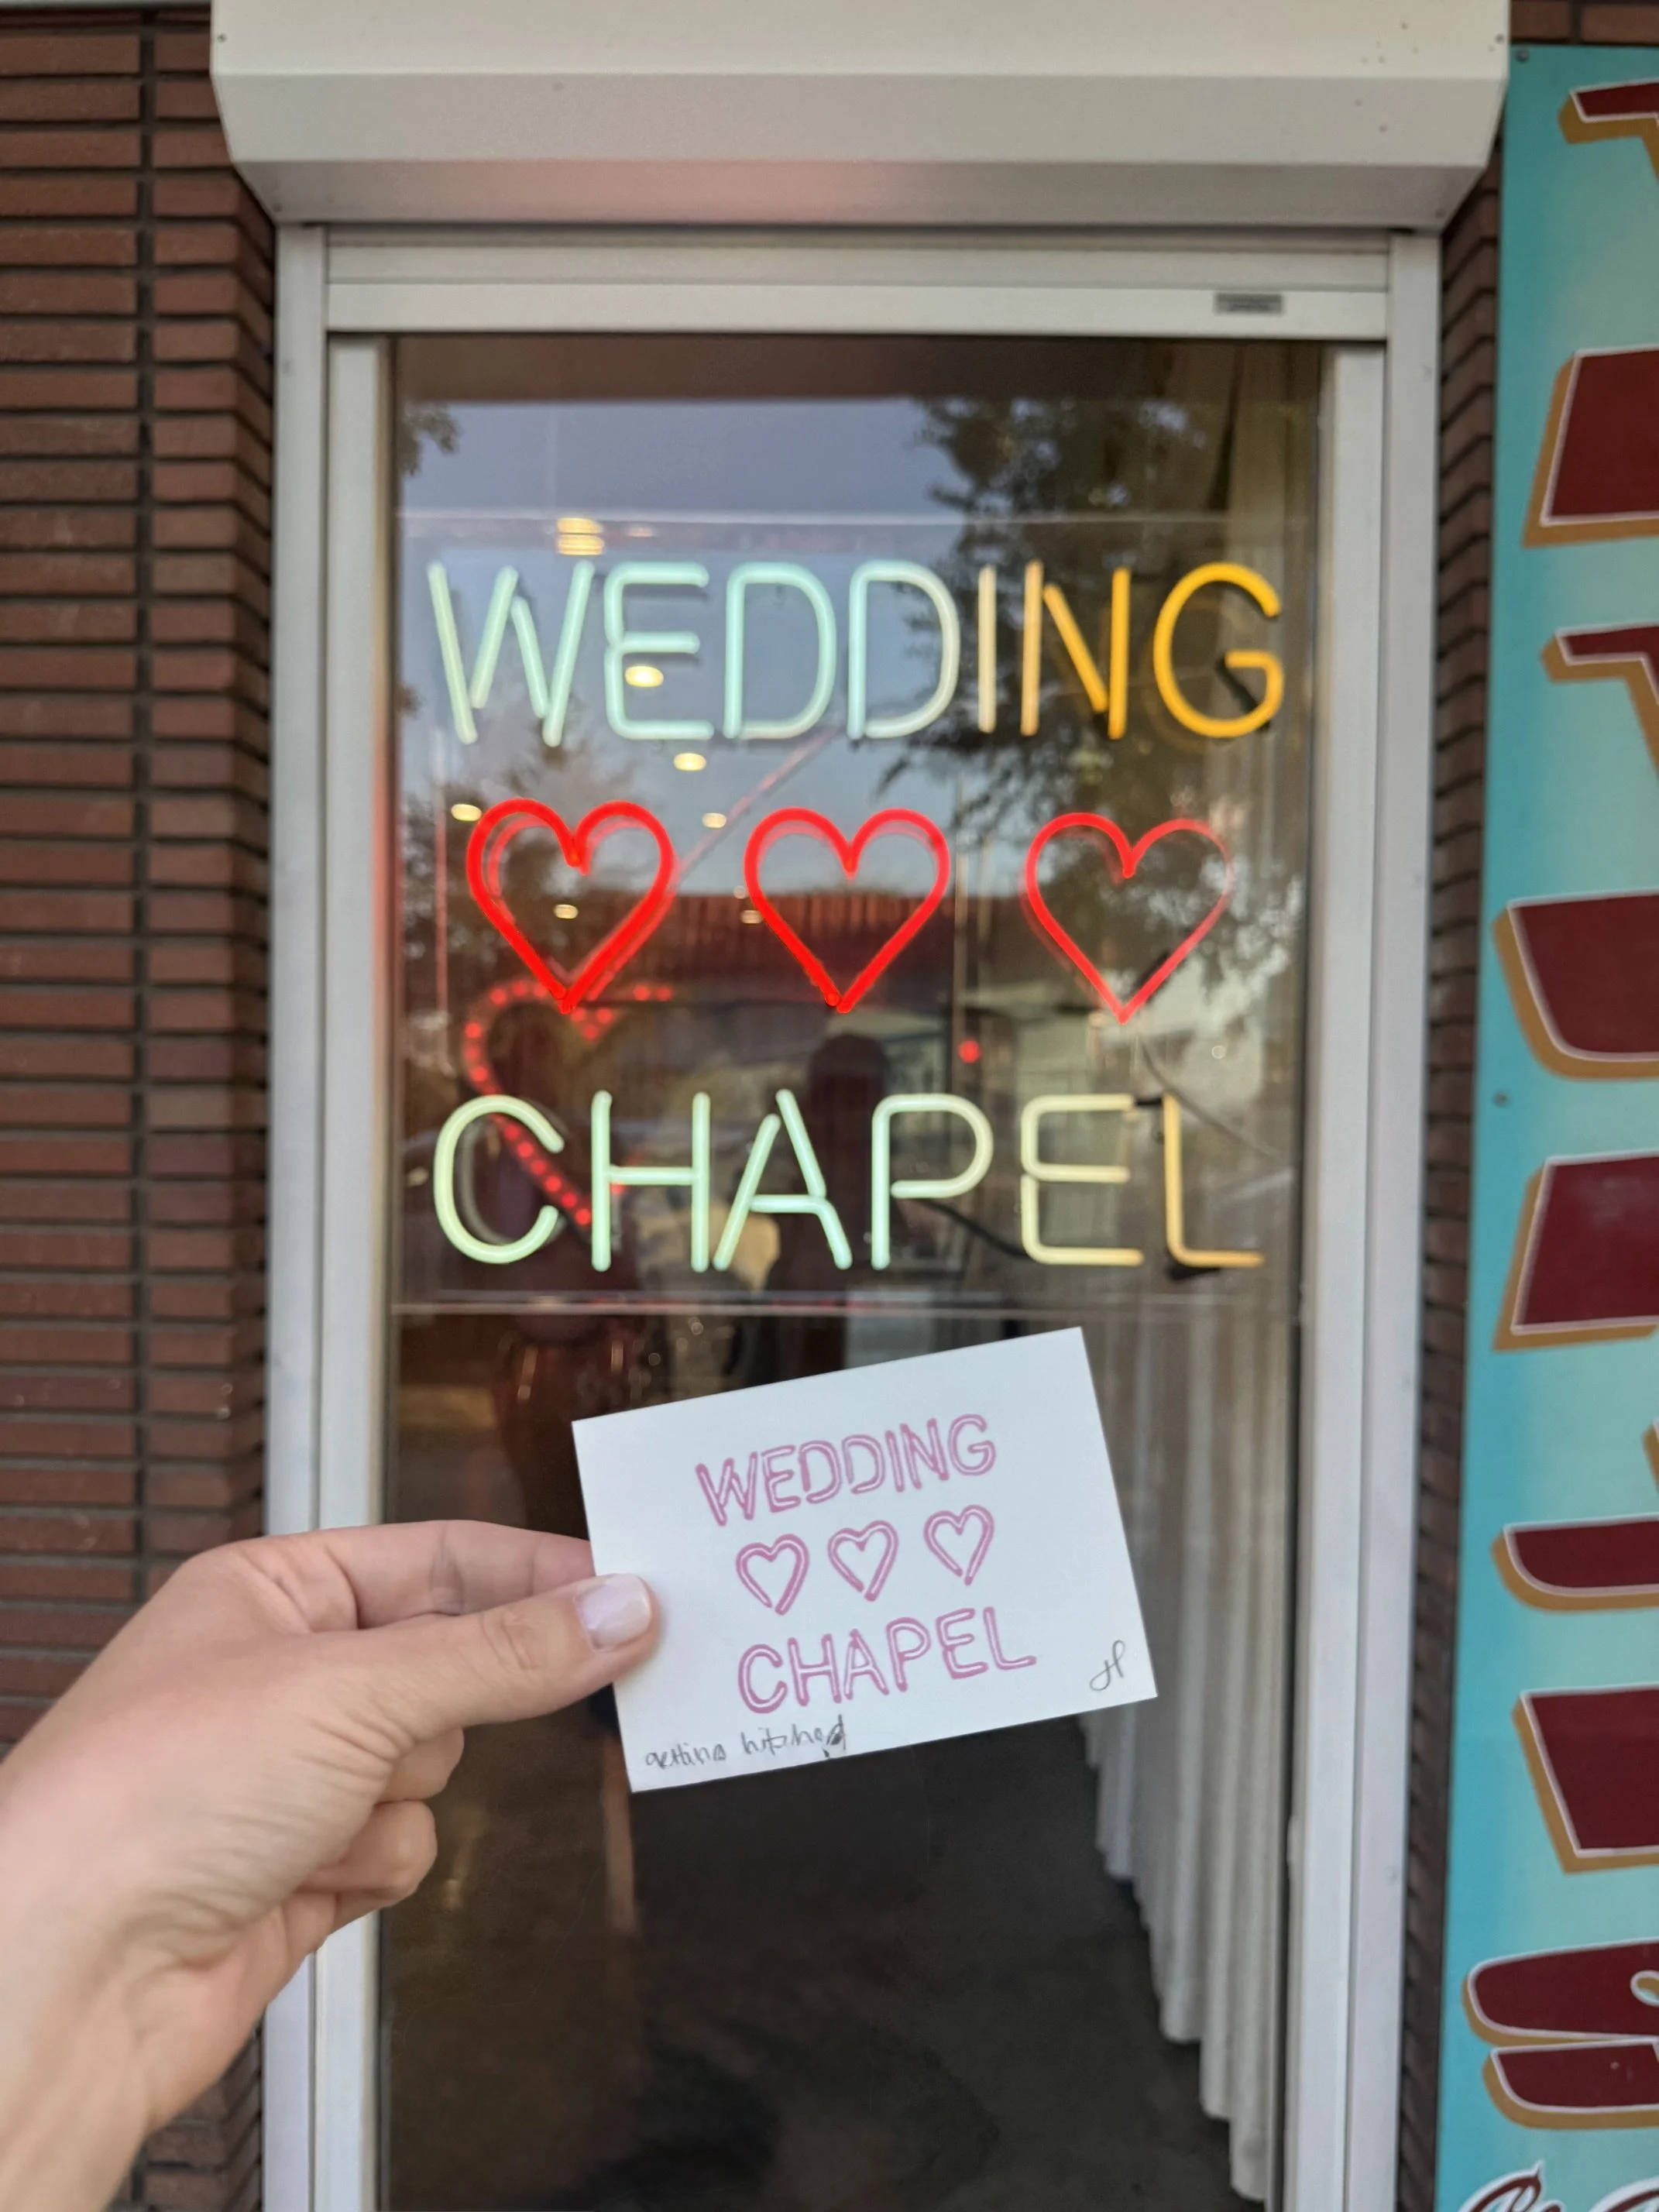 WEDDING
CHAPEL
WEDDING
CHAPEL
getting hitched